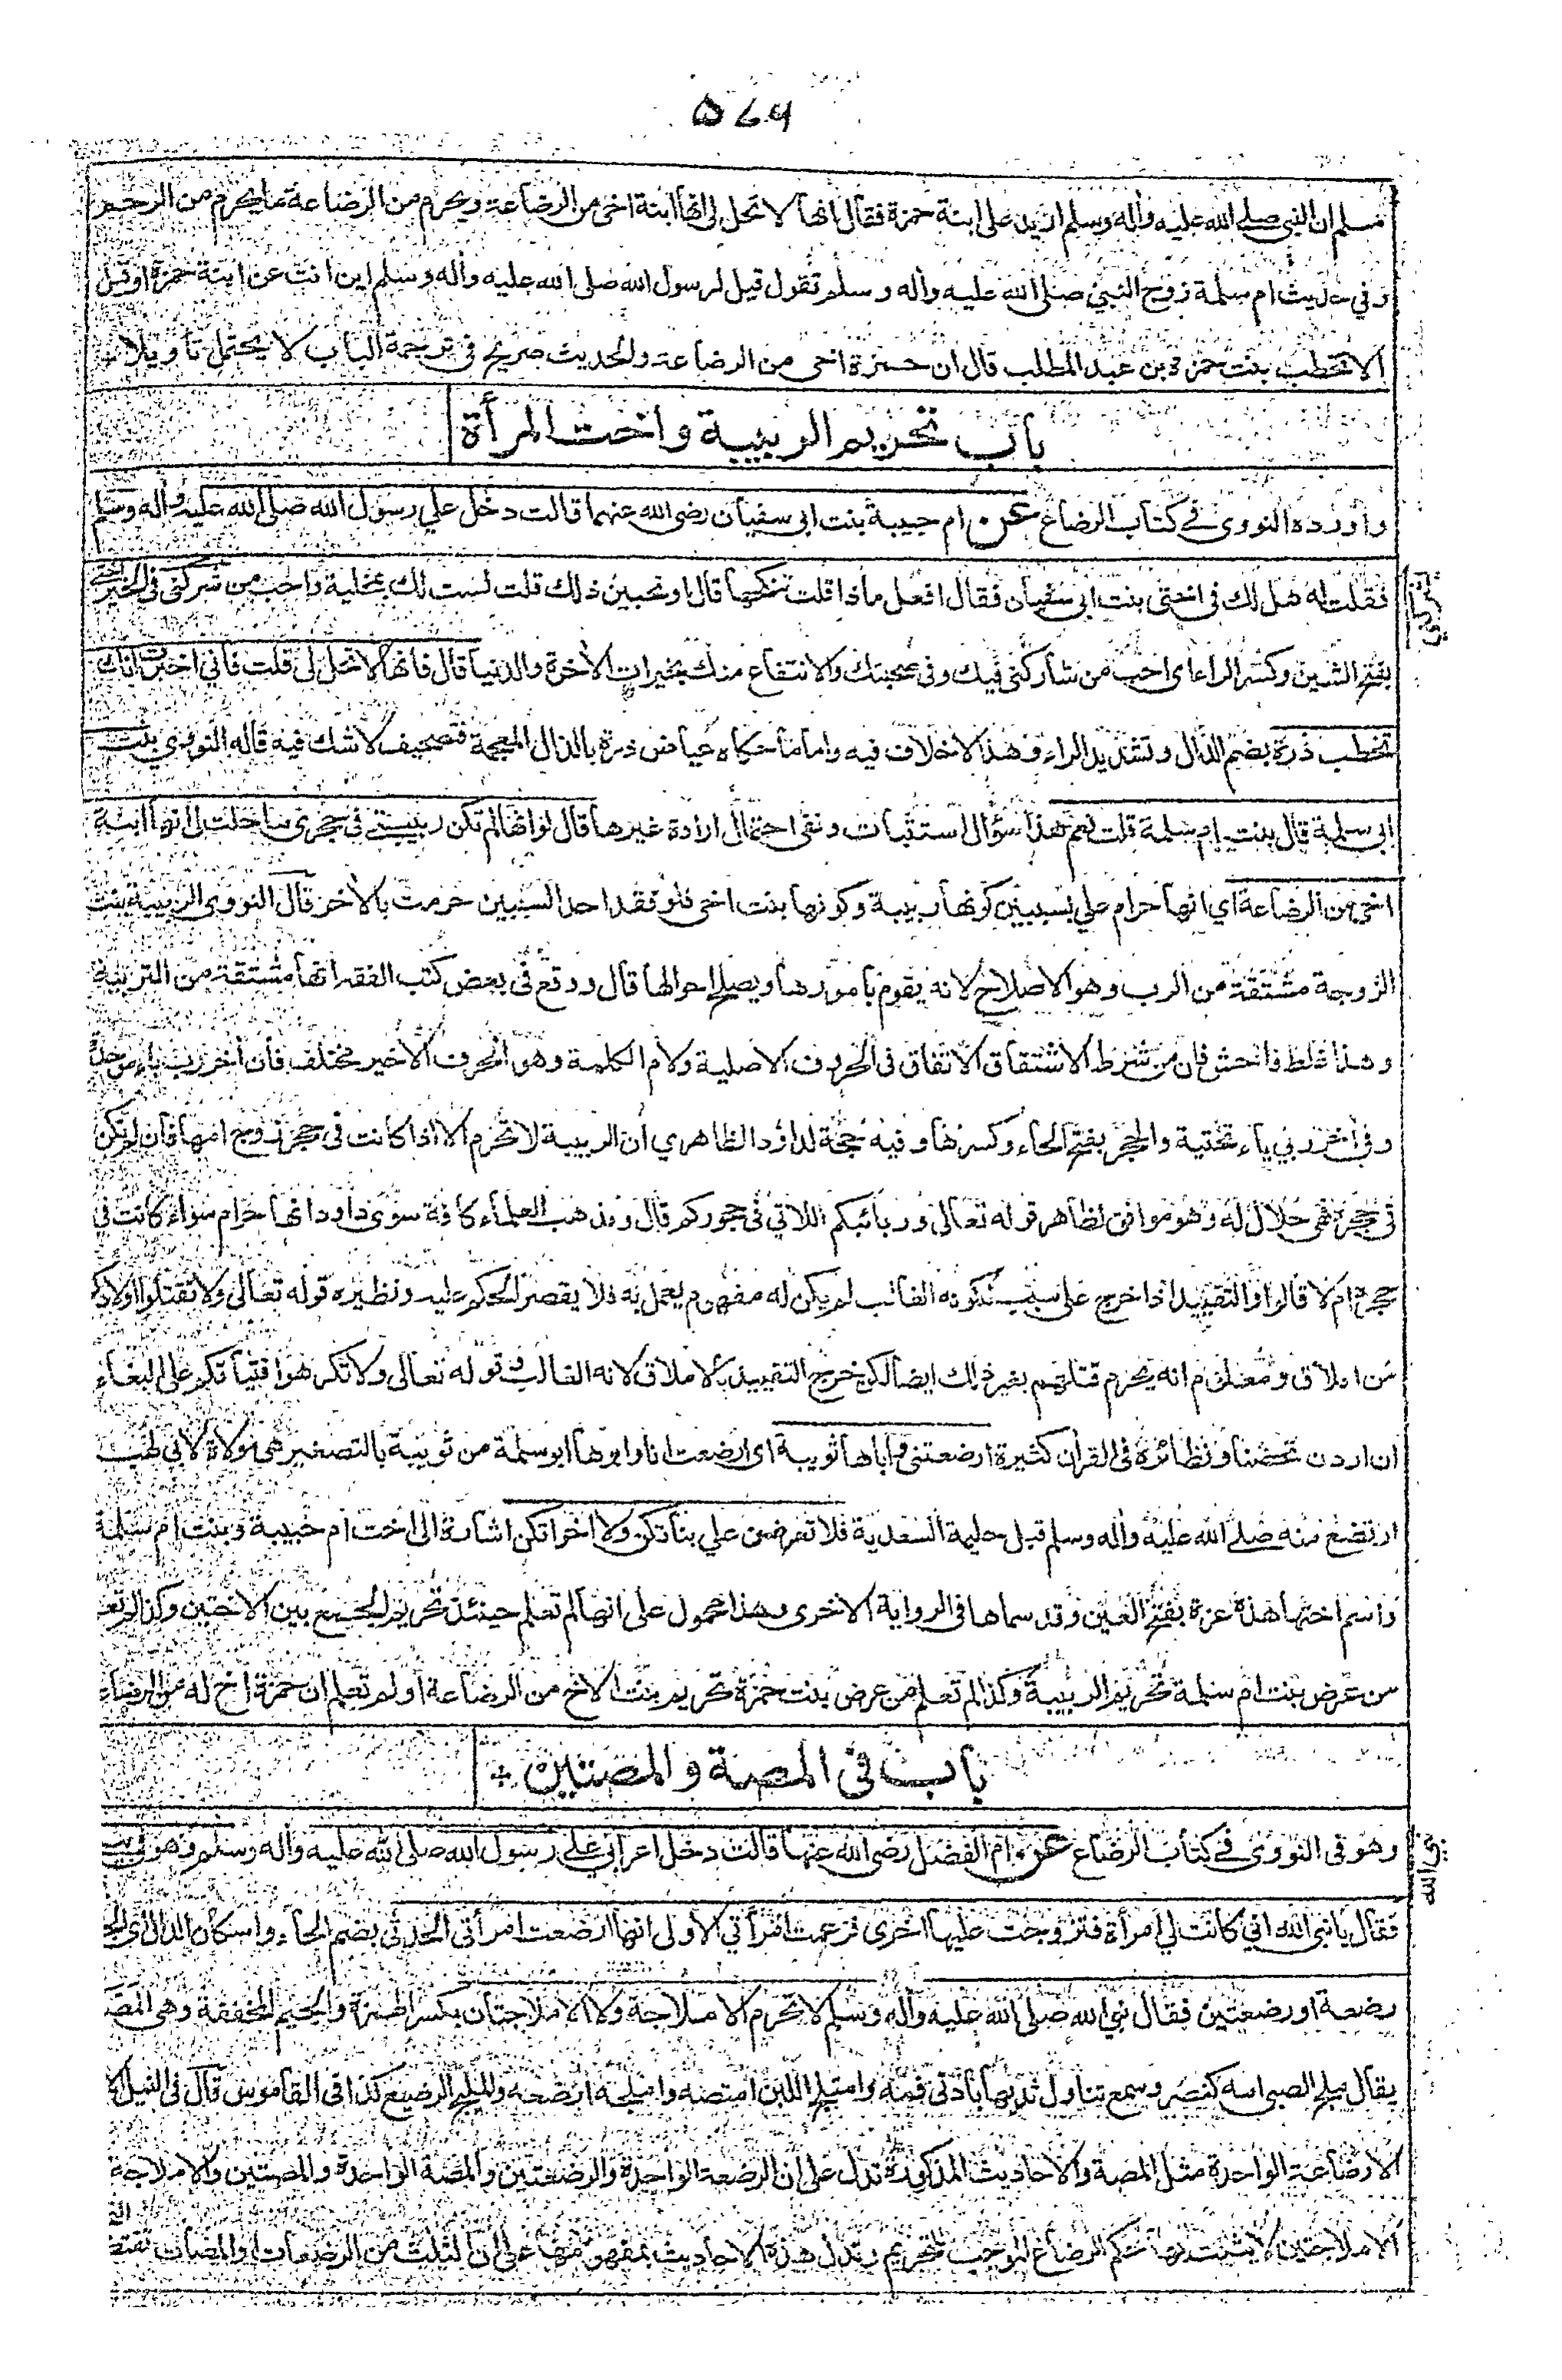 ۵۷۹
مسلم ان النبي صلى الله عليه واله وسلم اريد على ابنة حمزة فقال انها لا تحل لي انها ابنة اخي من الرضاعة ويحرم من الرضاعة ما يحرم من الرحم
وفي حديث ام سلمة زوج النبي صلى الله عليه واله وسلم تقول قيل لرسول الله صلى الله عليه واله وسلم اين انت عن ابنة حمزة او قيل
الا تخطب بنت حمزة بن عبد المطلب قال ان حمزة اخي من الرضاعة والحديث صريح في ترجمة الباب لا يحتمل تأويلا
باب تحريم الربيبة واخت المرأة
واورده النووي في كتاب الرضاع عن ام حبيبة بنت ابي سفيان رضي الله عنهما قالت دخل علي رسول الله صلى الله عليه واله وسلم
فقلت له هل لك في اختي بنت ابي سفيان فقال افعل ماذا قلت تنكحها قال او تحبين ذلك قلت لست لك بمخلية واحب من شركني في الخير اختي
بفتح الشين وكسر الراء اي احب من شاركني فيك وفي صحبتك والانتفاع منك بخيرات الأخرة والدنيا قال فانها لا تحل لي قلت فاني اخبرت انك
تخطب درة بضم الدال وتشديد الراء وهذا لا خلاف فيه واما ما حكاه عياض ذرة بالذال المعجمة فتصحيف لا شك فيه قاله النووي بنت
ابي سلمة قال بنت ام سلمة قلت نعم هذا سؤال استثبات ونفي احتمال ارادة غيرها قال لو انها لم تكن ربيبتي في حجري ما حلت لي انها ابنة
اخي من الرضاعة اي انها حرام علي بسببين كونها ربيبة وكونها بنت اخي فلو فقد احد السببين حرمت بالأخر قال النووي الربيبة بنت
الزوجة مشتقة من الرب وهو الاصلاح لانه يقوم بأمورها ويصلح احوالها قال ووقع في بعض كتب الفقه انها مشتقة من التربية
وهذا غلط فاحش فان من شرط الاشتقاق الاتفاق في الحروف الاصلية ولام الكلمة وهو الحرف الاخير مختلف فان أخر رب باء موحدة
وفي أخر ربي ياء تحتية والحجر بفتح الحاء وكسرها وفيه حجة لداؤد الظاهري ان الربيبة لا تحرم الا اذا كانت في حجر زوج امها فان لم تكن
في حجره فهي حلال له وهو موافق لظاهر قوله تعالى وربائبكم اللاتي في حجوركم قال ومذهب العلماء كافة سوى داود انها حرام سواء كانت في
حجره ام لا قالوا والتقييد اذا خرج على سبب لكونه الغالب لم يكن له مفهوم يعمل به فلا يقصر الحكم عليه ونظيره قوله تعالى ولا تقتلوا اولادكم
من املاق ومعلوم انه يحرم قتلهم بغير ذلك ايضا لكن خرج التقييد بالاملاق لانه الغالب وقوله تعالى ولا تكرهوا فتياتكم على البغاء
ان اردن تحصنا ونظائره في القرأن كثيرة ارضعتني واباها ثويبة اي ارضعت انا وابوها ابو سلمة من ثويبة بالتصغير هي مولاة لابي لهب
ارتضع منه صلى الله عليه واله وسلم قبل حليمة السعدية فلا تعرضن علي بناتكن ولا اخواتكن اشارة الى اخت ام حبيبة وبنت ام سلمة
واسم اختها هذه عزة بفتح العين وقد سماها في الرواية الاخرى وهذا محمول على انها لم تعلم حينئذ تحريم الجمع بين الاختين وكذا لم تعلم
من عرض بنت ام سلمة تحريم الربيبة وكذا لم تعلم من عرض بنت حمزة تحريم بنت الاخ من الرضاعة او لم تعلم ان حمزة اخ له من الرضاعة
باب في المصة والمصتين
وهو في النووي في كتاب الرضاع عن ام الفضل رضي الله عنها قالت دخل اعرابي على رسول الله صلى الله عليه واله وسلم وهو في بيتي
فقال يا نبي الله اني كانت لي امرأة فتزوجت عليها اخرى فزعمت امرأتي الاولى انها ارضعت امرأتي الحدثى بضم الحاء واسكان الدال
رضعة او رضعتين فقال نبي الله صلى الله عليه واله وسلم لا تحرم الاملاجة ولا الاملاجتان بكسر الهمزة والجيم المخففة وهي المصة
يقال ملج الصبي امه كنصر وسمع تناول ثديها بادنى فمه وامتلج اللبن امتصه واملجه ارضعه والمليج الرضيع كذا في القاموس قال في النيل
الارضاعة الواحدة مثل المصة والاحاديث المذكورة تدل على ان الرضعة الواحدة والرضعتين والمصة الواحدة والمصتين والاملاجة
الاملاجتين لا يثبت بها حكم الرضاع الموجب للتحريم وتدل هذه الاحاديث بمفهومها على ان الثلث من الرضعات او المصات تقتضي